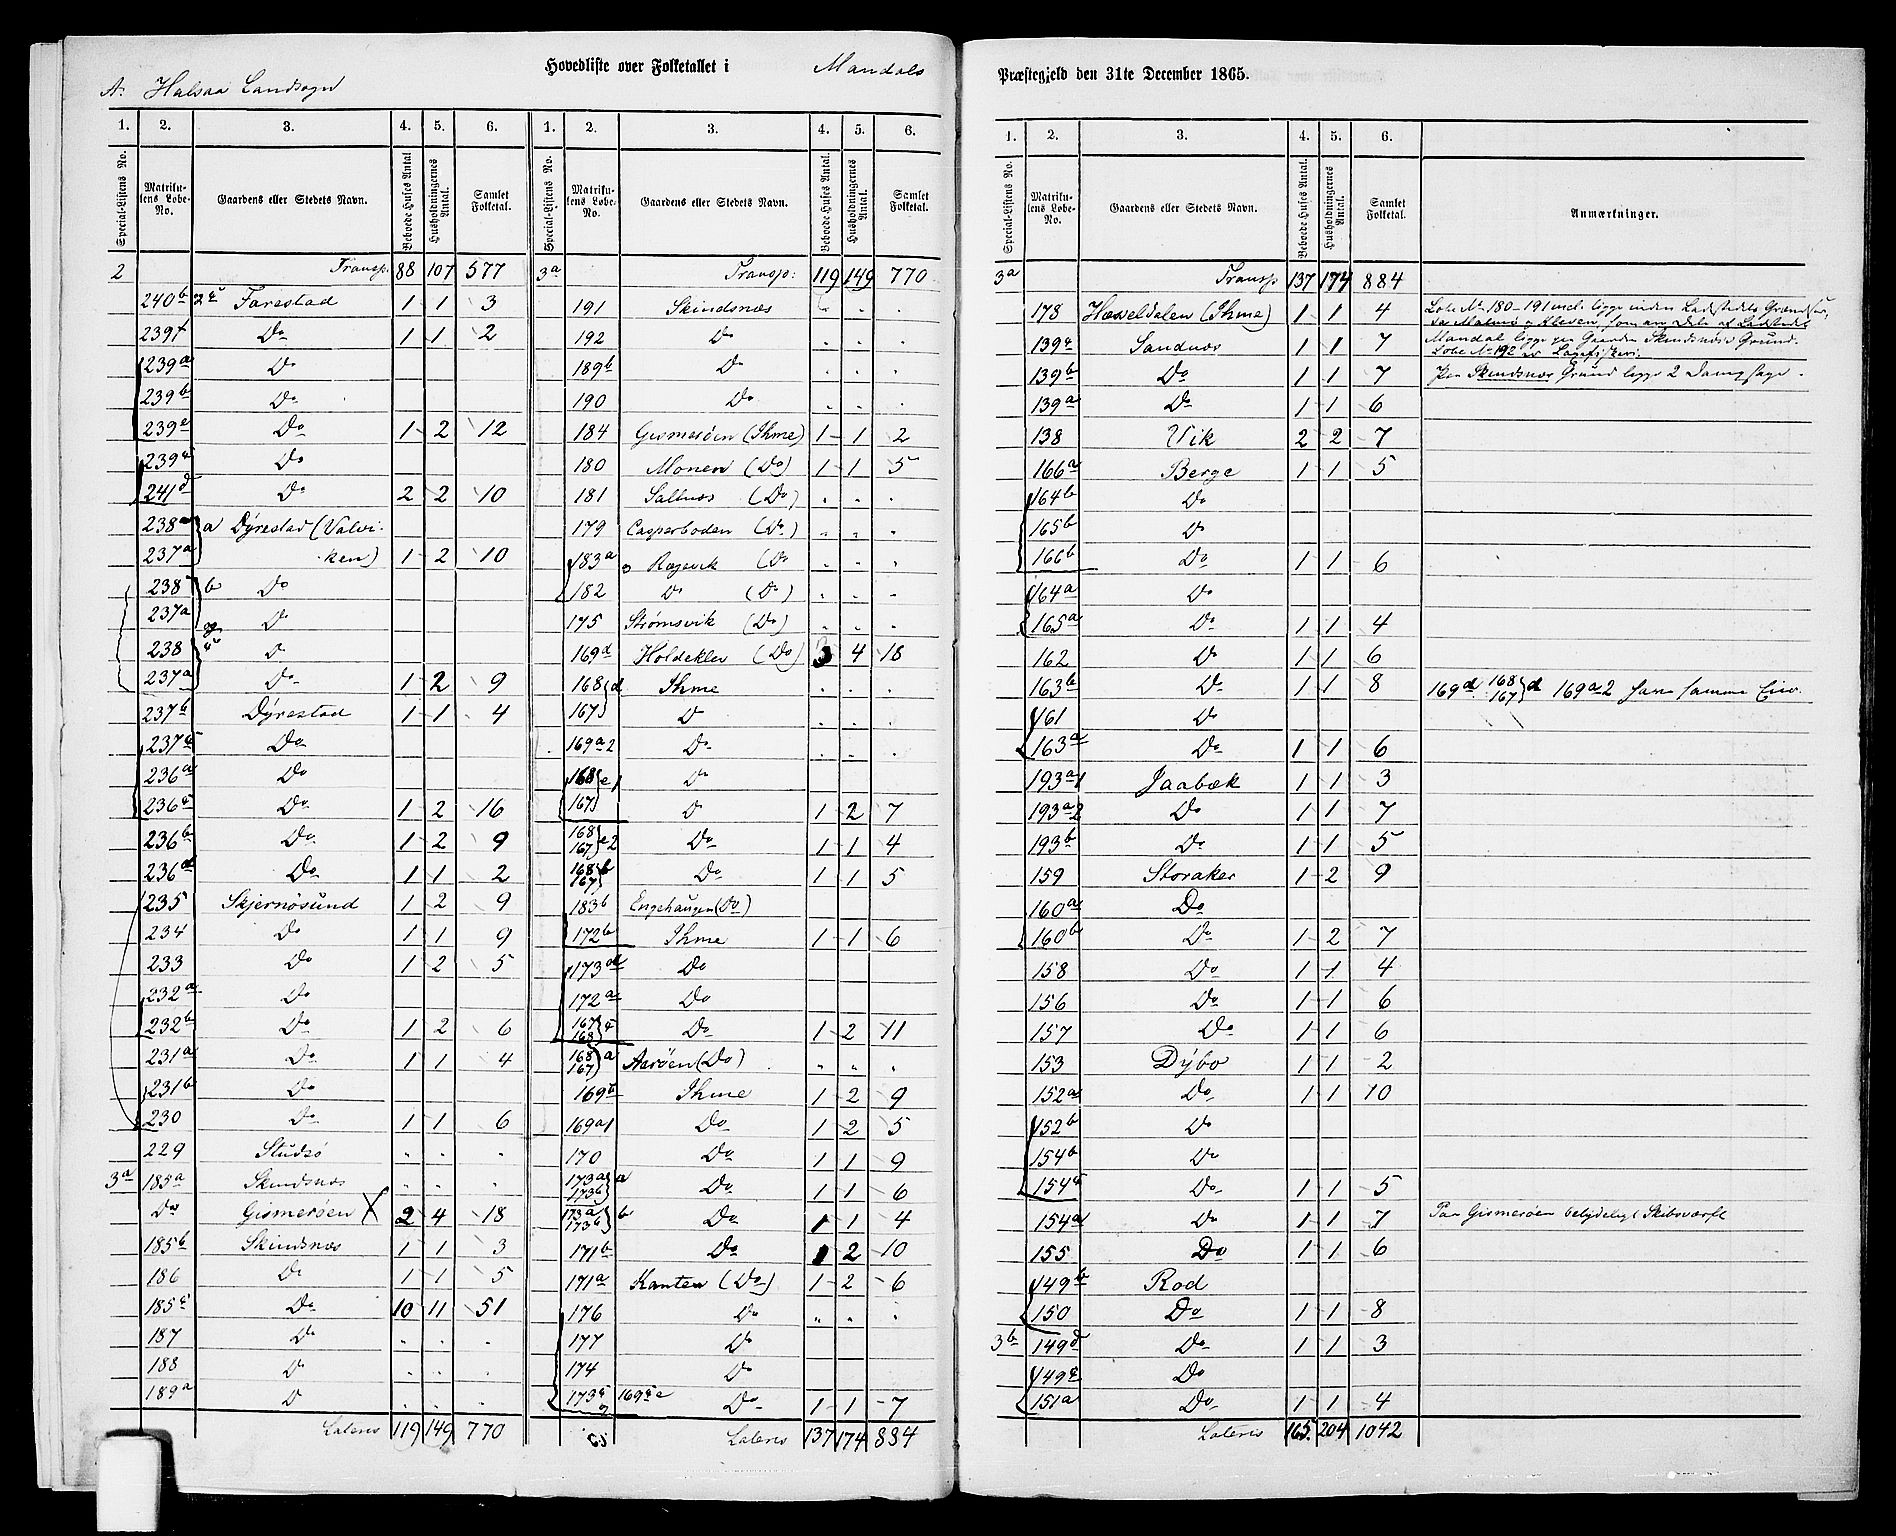 Hovedliste over Folketallet i Mandals
A. Halsaa Landsogn
1. 2. 3. 4. 5. 6.
Special-Listens No. Matrikulens Løbe-No. Gaardens eller Stedets Navn. Beboede Huses Antal. Husholdningernes Antal. Samlet Folketal.
2 Transp. 88 107 577
240b 2 Farestad 1 1 3
239f Do 1 1 2
239a Do
239b Do
239e Do 1 2 12
239c Do
241d Do 2 2 10
238a a Dÿrestad (Valvi-
237a ken) 1 2 10
238 b Do
237a Do
238 Do
237a Do 1 2 9
237b Dÿrestad 1 1 4
237c Do
236a Do
236c Do 1 2 16
236b Do 1 2 9
236d Do 1 1 2
235 Skjernøsund 1 2 9
234 Do 1 1 9
233 Do 1 2 5
232a Do
232b Do 1 2 6
231a Do 1 1 4
231b Do
230 Do 1 1 6
229 Studsø
3a 185a Skindsnæs
Do Gismerøen X 2 4 18
185b Skindsnæs 1 1 3
186 Do 1 1 5
185c Do 10 11 51
187 Do
188 Do
189a Do
Lateris 119 149 770
1. 2. 3. 4. 5. 6.
Special-Listens No. Matrikulens Løbe-No. Gaardens eller Stedets Navn. Beboede Huses Antal. Husholdningernes Antal. Samlet Folketal.
3a Transp: 119 149 770
191 Skindsnæs
192 Do
189b Do
190 Do
184 Gismerøen (Ihme) 1 1 2
180 Monen (Do) 1 1 5
181 Saltnæs (Do)
179 Casperboden (Do)
183a Rogevik (Do
182 Do (Do)
175 Strømsvik (Do)
169d Holdekler (Do) 3 4 18
168 d Ihme
167 Do
169a2 Do
168 e1 Do
167 Do 1 2 7
168 167 e2 Do 1 1 4
168 167 b Do 1 1 5
183b Engehaugen (Do)
172b Ihme 1 1 6
173d Do
172a Do
167 168 c Do 1 2 11
168 167 a Aarøen (Do)
169b Ihme 1 2 9
169a1 Do 1 2 5
170 Do 1 1 9
173a 173b a Do 1 1 6
173a 173b b Do 1 1 4
171b Do 1 2 10
171a Kanten (Do) 1 2 6
176 Do
177 Do
174 Do
173c 169c e Do 1 1 7
Lateris 137 174 884
Præstegjeld den 31te December 1865.
1. 2. 3. 4. 5. 6.
Special-Listens No. Matrikulens Løbe-No. Gaardens eller Stedets Navn. Beboede Huses Antal. Husholdningernes Antal. Samlet Folketal. Anmærkninger.
3a Transp 137 174 884
178 Hæsseldalen (Ihme) 1 1 4 Løbe No 180–191 incl. ligge inden Ladstedets Grændser,
da Malmø og Kleven, som are Dele af Ladstedet
139c Sandnæs 1 1 7 Mandal ligge paa Gaarden Skindsnæs's Grund.
Løbe No 192 er Laxefiskeri.
139b Do 1 1 7 Paa Skindsnæs Grund ligge 2 Dampsage.
139a Do 1 1 6
138 Vik 2 2 7
166a Berge 1 1 5
164b Do
165b Do
166b Do 1 1 6
164a Do
165a Do 1 1 4
162 Do 1 1 6
163b Do 1 1 8 169d 168 167 d 169a2 have samme Eier.
161 Do
163a Do 1 1 6
193a1 Jaabæk 1 1 3
193a2 Do 1 1 7
193b Do 1 1 5
159 Storaker 1 2 9
160a Do
160b Do 1 2 7
158 Do 1 1 4
156 Do 1 1 6
157 Do 1 1 6
153 Dÿbo 1 1 2
152a Do 1 1 10
152b Do
154b Do
154c Do 1 1 5
154a Do 1 1 7 Paa Gismerøen betydeligt Skibsværft
155 Do 1 1 6
149b Rod
150 Do 1 1 8
3b 149d Do 1 1 3
149c Do
151a Do 1 1 4
Lateris 165 204 1042